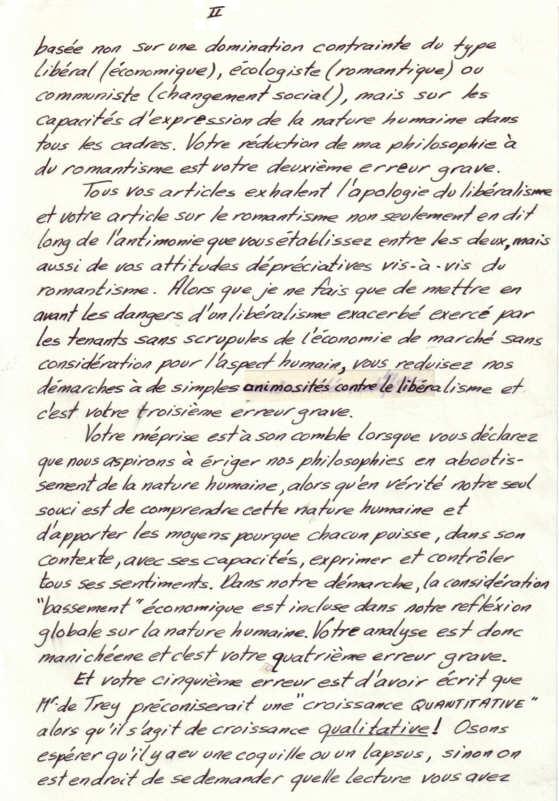 II
basée non sur une domination contrainte du type
libéral (économique), écologiste (romantique) ou
communiste (changement social), mais sur les
capacités d'expression de la nature humaine dans
tous les cadres. Votre réduction de ma philosophie à
du romantisme est votre deuxième erreur grave.
Tous vos articles exhalent l'apologie du libéralisme
et votre article sur le romantisme non seulement en dit
long de l'antimonie que vous établissez entre les deux, mais
aussi de vos attitudes dépréciatives vis-à-vis du
romantisme. Alors que je ne fais que de mettre en
avant les dangers d'un libéralisme exacerbé exercé par
les tenants sans scrupules de l'économie de marché sans
considération pour l'aspect humain, vous reduisez nos
démarches à de simples animosités contre le libéralisme et
c'est votre troisième erreur grave.
Votre méprise est à son comble lorsque vous déclarez
que nous aspirons à ériger nos philosophies en aboutis-
sement de la nature humaine, alors qu'en vérité notre seul
souci est de comprendre cette nature humaine et
d'apporter les moyens pourque chacun puisse, dans son
contexte, avec ses capacités, exprimer et contrôler
tous ses sentiments. Dans notre démarche, la considération
"bassement" économique est incluse dans notre refléxion
globale sur la nature humaine. Votre analyse est donc
manichéene et c'est votre quatrième erreur grave.
Et votre cinquième erreur est d'avoir écrit que
Mr de Trey préconiserait une "croissance QUANTITATIVE"
alors qu'il s'agit de croissance qualitative! Osons
espérer qu'il y a eu une coquille ou un lapsus, sinon on
est en droit de se demander quelle lecture vous avez